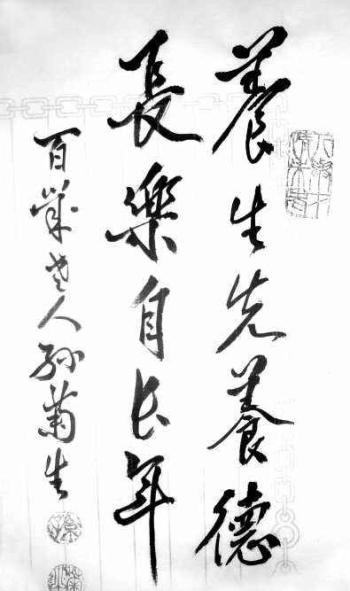 養生先養德
長樂自长年
百歲老人孙菊生